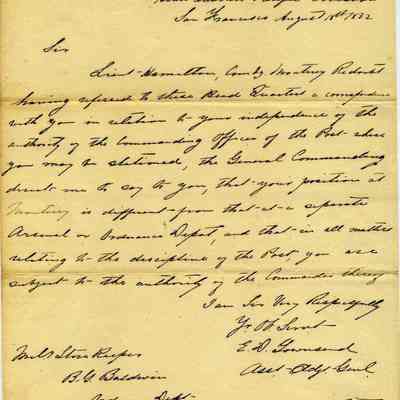 San Francisco August 18th 1852
Sir
Lieut. Hamilton, Comdg Monterey Redoubt
having referred to these Head Quarters a correspondence
with you in relation to your independence of the
authority of the Commanding Officer of the Post where
you may be stationed, the General Commanding
directs me to say to you, that your position at
Monterey is different from that at a separate
Arsenal or Ordnance Depot, and that in all matters
relating to the discipline of the Post, you are
subject to the authority of the Commander thereof
I am Sir Very Respectfully
Yr Ob Servt
E. D. Townsend
Asst. Adjt. Genl.
Mily Store Keeper
B. G. Baldwin
Dept.